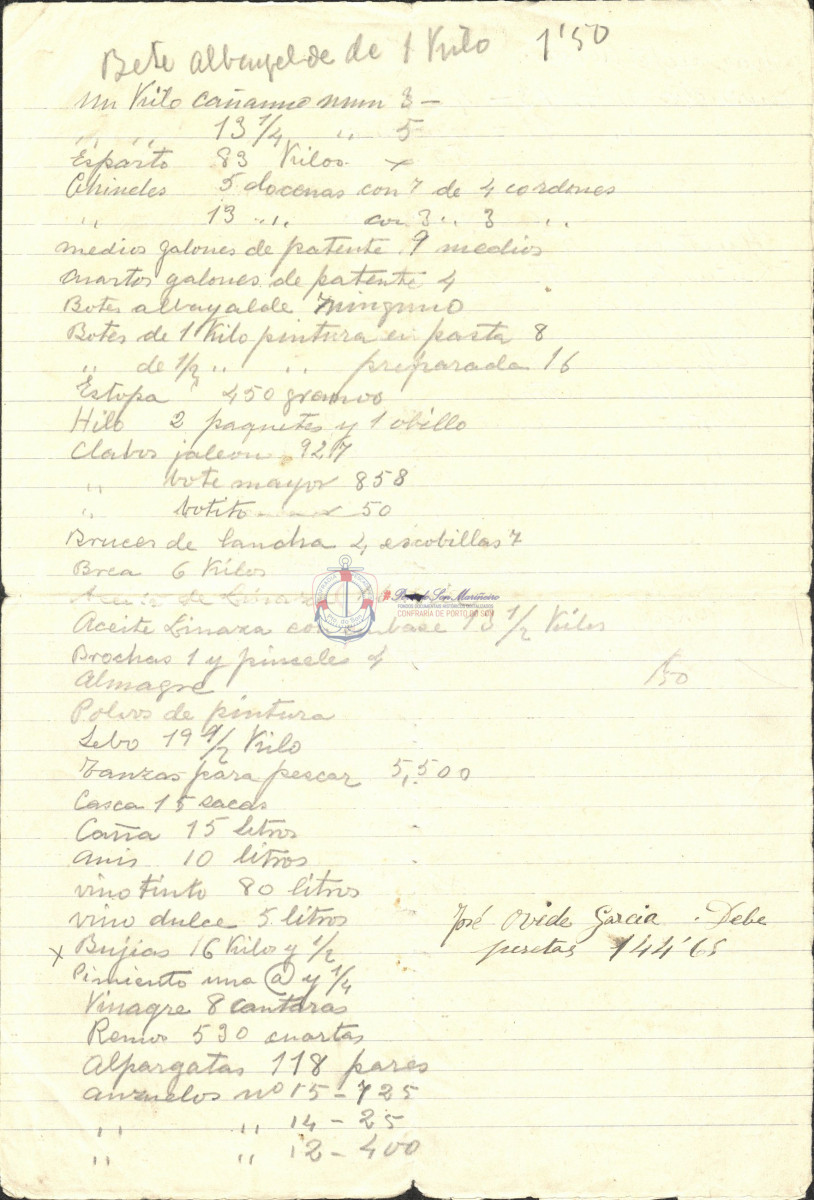 Bote albayalde de 1 Kilo 1'50
un Kilo cañamo num 3 –
" " 13 1/4 " 5
Esparto 83 Kilos x
Chineles 5 docenas con 7 de 4 cordones
" 13 " " con 3 " 3 " "
medios galones de patente 9 medios
cuartos galones de patente 4
Botes albayalde ninguno
Botes de 1 Kilo pintura en pasta 8
" de 1/2 " " " preparada 16
Estopa 450 gramos
Hilo 2 paquetes y 1 obillo
Clabos jaleon 927
" bote mayor 858
" botito 50
Bruces de lancha 4, escobillas 7
Brea 6 Kilos
Aceite de Linaza
CONFRARIA DE PORTO DO SON
Aceite Linaza con base 13 1/2 Kilos
Brochas 1 y pinceles 4
Almagre 1'50
Polvos de pintura
Sebo 19 1/2 Kilo
Tanzas para pescar 5,500
Casca 15 sacas
Caña 15 litros
anis 10 litros
vino tinto 80 litros
vino dulce 5 litros
José Ovide Garcia . Debe
pesetas 144'65
x Bujias 16 Kilo y 1/2
Pimiento una @ y 1/4
Vinagre 8 cantaras
Remos 530 cuartas
Alpargatas 118 pares
anzuelos nº 15 – 725
" " 14 – 25
" " 12 – 400